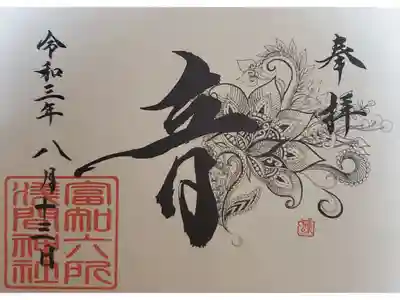 奉拝
音
令和三年八月十三日
富知六所
淺間神社